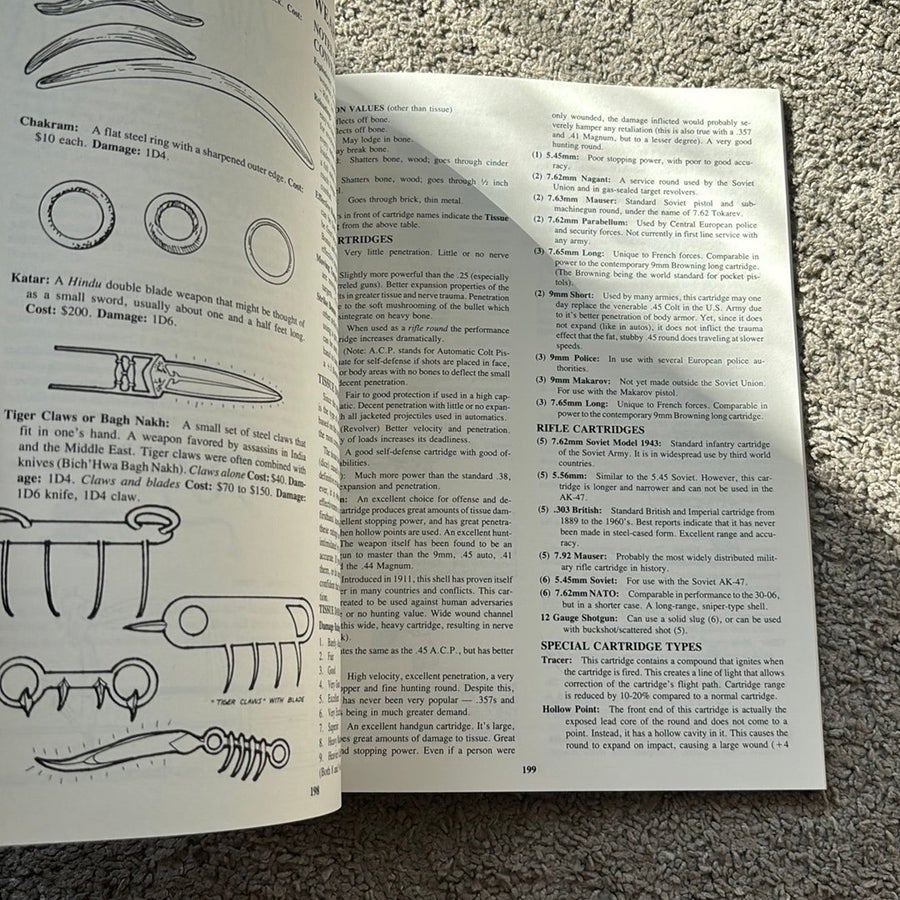 Cost:
Chakram: A flat steel ring with a sharpened outer edge. Cost:
$10 each. Damage: 1D4.
Katar: A Hindu double blade weapon that might be thought of
as a small sword, usually about one and a half feet long.
Cost: $200. Damage: 1D6.
Tiger Claws or Bagh Nakh: A small set of steel claws that
fit in one's hand. A weapon favored by assassins in India
and the Middle East. Tiger claws were often combined with
knives (Bich'Hwa Bagh Nakh). Claws alone Cost: $40. Dam-
age: 1D4. Claws and blades Cost: $70 to $150. Damage:
1D6 knife, 1D4 claw.
"TIGER CLAWS" WITH BLADE
198
ON VALUES (other than tissue)
flects off bone.
lects off bone.
May lodge in bone.
ay break bone.
Shatters bone, wood; goes through cinder
Shatters bone, wood; goes through ½ inch
Goes through brick, thin metal.
s in front of cartridge names indicate the Tissue
from the above table.
RTRIDGES
Very little penetration. Little or no nerve
Slightly more powerful than the .25 (especially
reled guns). Better expansion properties of the
ts in greater tissue and nerve trauma. Penetration
to the soft mushrooming of the bullet which
sintegrate on heavy bone.
When used as a rifle round the performance
ridge increases dramatically.
(Note: A.C.P. stands for Automatic Colt Pis-
ate for self-defense if shots are placed in face,
or body areas with no bones to deflect the small
decent penetration.
Fair to good protection if used in a high cap-
atic. Decent penetration with little or no expan-
h all jacketed projectiles used in automatics.
(Revolver) Better velocity and penetration.
y of loads increases its deadliness.
A good self-defense cartridge with good of-
abilities.
Much more power than the standard .38,
expansion and penetration.
An excellent choice for offense and de-
artridge produces great amounts of tissue dam-
ellent stopping power, and has great penetra-
hen hollow points are used. An excellent hunt-
The weapon itself has been found to be an
un to master than the 9mm, .45 auto, .41
d the .44 Magnum.
Introduced in 1911, this shell has proven itself
er in many countries and conflicts. This car-
eated to be used against human adversaries
or no hunting value. Wide wound channel
this wide, heavy cartridge, resulting in nerve
k).
tes the same as the .45 A.C.P., but has better
High velocity, excellent penetration, a very
pper and fine hunting round. Despite this,
has never been very popular — .357s and
being in much greater demand.
An excellent handgun cartridge. It's large,
ves great amounts of damage to tissue. Great
nd stopping power. Even if a person were
only wounded, the damage inflicted would probably se-
verely hamper any retaliation (this is also true with a .357
and .41 Magnum, but to a lesser degree). A very good
hunting round.
(1) 5.45mm: Poor stopping power, with poor to good accu-
racy.
(2) 7.62mm Nagant: A service round used by the Soviet
Union and in gas-sealed target revolvers.
(2) 7.63mm Mauser: Standard Soviet pistol and sub-
machinegun round, under the name of 7.62 Tokarev.
(2) 7.62mm Parabellum: Used by Central European police
and security forces. Not currently in first line service with
any army.
(3) 7.65mm Long: Unique to French forces. Comparable in
power to the contemporary 9mm Browning long cartridge.
(The Browning being the world standard for pocket pis-
tols).
(2) 9mm Short: Used by many armies, this cartridge may one
day replace the venerable .45 Colt in the U.S. Army due
to it's better penetration of body armor. Yet, since it does
not expand (like in autos), it does not inflict the trauma
effect that the fat, stubby .45 round does traveling at slower
speeds.
(3) 9mm Police: In use with several European police au-
thorities.
(3) 9mm Makarov: Not yet made outside the Soviet Union.
For use with the Makarov pistol.
(3) 7.65mm Long: Unique to French forces. Comparable in
power to the contemporary 9mm Browning long cartridge.
RIFLE CARTRIDGES
(5) 7.62mm Soviet Model 1943: Standard infantry cartridge
of the Soviet Army. It is in widespread use by third world
countries.
(5) 5.56mm: Similar to the 5.45 Soviet. However, this car-
tridge is longer and narrower and can not be used in the
AK-47.
(5) .303 British: Standard British and Imperial cartridge from
1889 to the 1960's. Best reports indicate that it has never
been made in steel-cased form. Excellent range and accu-
racy.
(5) 7.92 Mauser: Probably the most widely distributed milit-
ary rifle cartridge in history.
(6) 5.45mm Soviet: For use with the Soviet AK-47.
(6) 7.62mm NATO: Comparable in performance to the 30-06,
but in a shorter case. A long-range, sniper-type shell.
12 Gauge Shotgun: Can use a solid slug (6), or can be used
with buckshot/scattered shot (5).
SPECIAL CARTRIDGE TYPES
Tracer: This cartridge contains a compound that ignites when
the cartridge is fired. This creates a line of light that allows
correction of the cartridge's flight path. Cartridge range
is reduced by 10-20% compared to a normal cartridge.
Hollow Point: The front end of this cartridge is actually the
exposed lead core of the round and does not come to a
point. Instead, it has a hollow cavity in it. This causes the
round to expand on impact, causing a large wound (+4
199